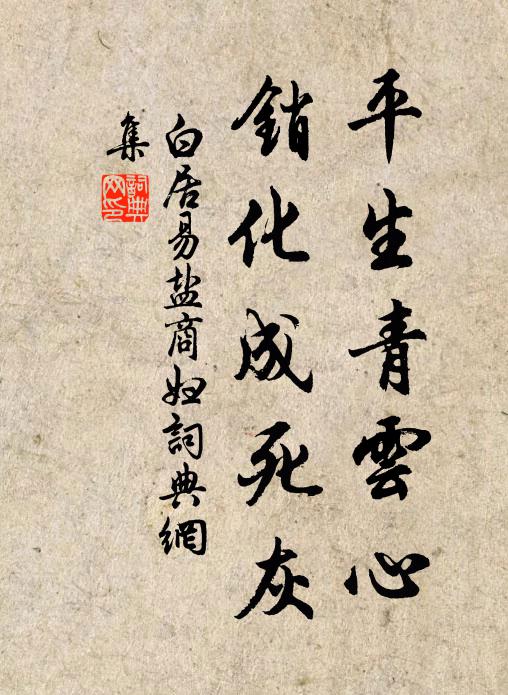 平生青雲心
銷化成死灰
白居易盐商妇詞典網
集
詞典网印